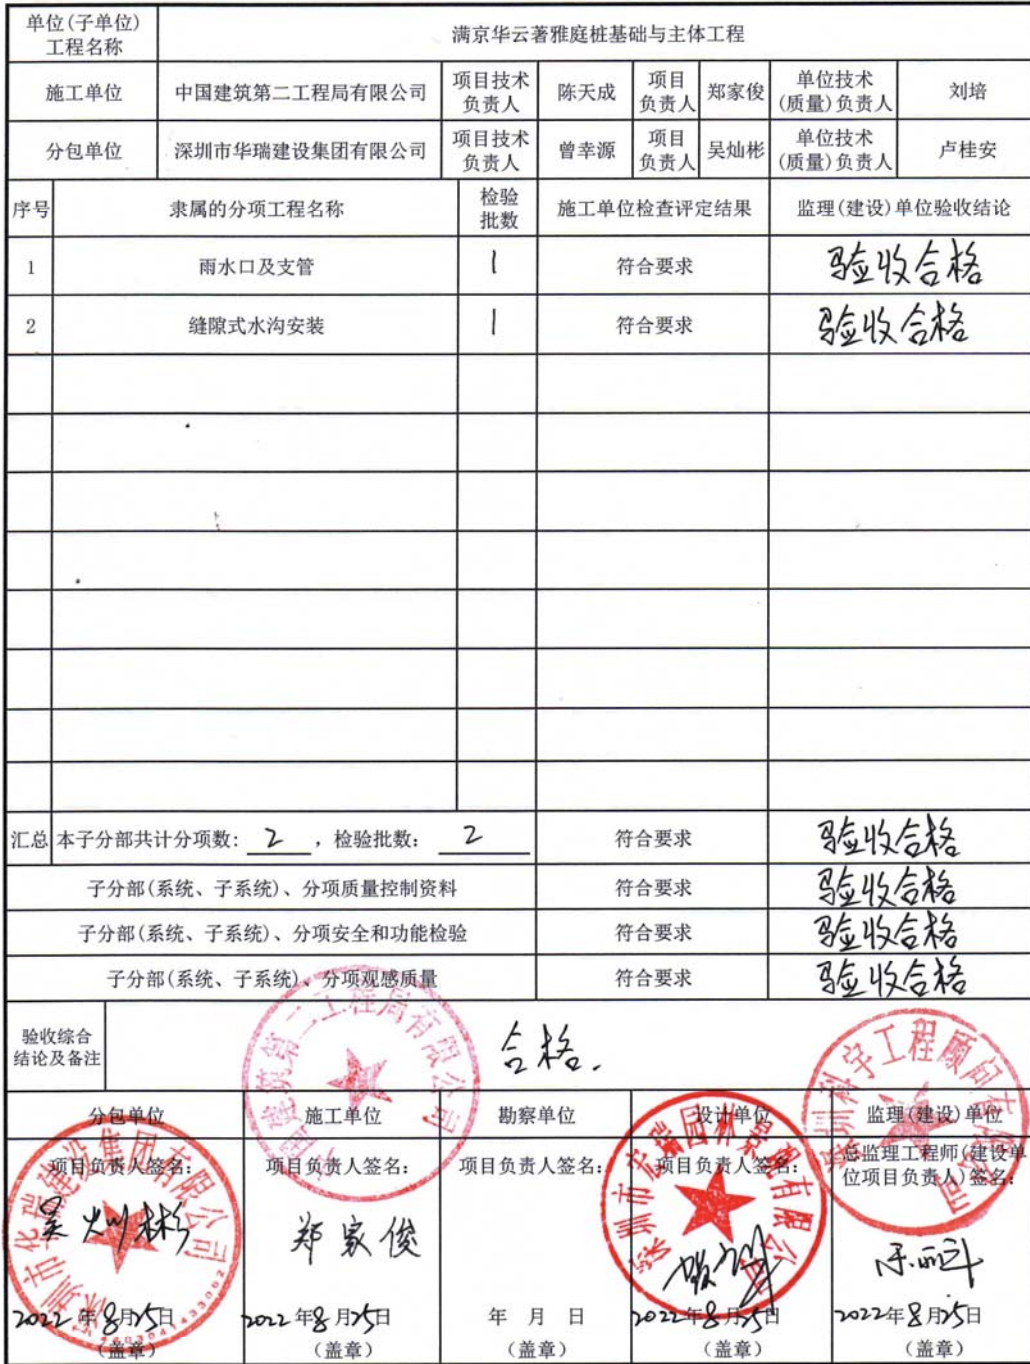 单位(子单位)
工程名称
满京华云著雅庭桩基础与主体工程
施工单位
中国建筑第二工程局有限公司
项目技术
负责人
陈天成
项目
负责人
郑家俊
单位技术
(质量)负责人
刘培
分包单位
深圳市华瑞建设集团有限公司
项目技术
负责人
曾幸源
项目
负责人
吴灿彬
单位技术
(质量)负责人
卢桂安
序号
隶属的分项工程名称
检验
批数
施工单位检查评定结果
监理(建设)单位验收结论
1
雨水口及支管
1
符合要求
验收合格
2
缝隙式水沟安装
1
符合要求
验收合格
汇总
本子分部共计分项数: 2 ,检验批数: 2
符合要求
验收合格
子分部(系统、子系统)、分项质量控制资料
符合要求
验收合格
子分部(系统、子系统)、分项安全和功能检验
符合要求
验收合格
子分部(系统、子系统)、分项观感质量
符合要求
验收合格
验收综合
结论及备注
合格.
分包单位
施工单位
勘察单位
设计单位
监理(建设)单位
项目负责人签名:
项目负责人签名:
项目负责人签名:
项目负责人签名:
总监理工程师(建设单
位项目负责人)签名:
吴灿彬
郑家俊
2022年8月25日
2022年8月25日
年 月 日
2022年8月25日
2022年8月25日
(盖章)
(盖章)
(盖章)
(盖章)
(盖章)
中国建筑第二工程局有限公司